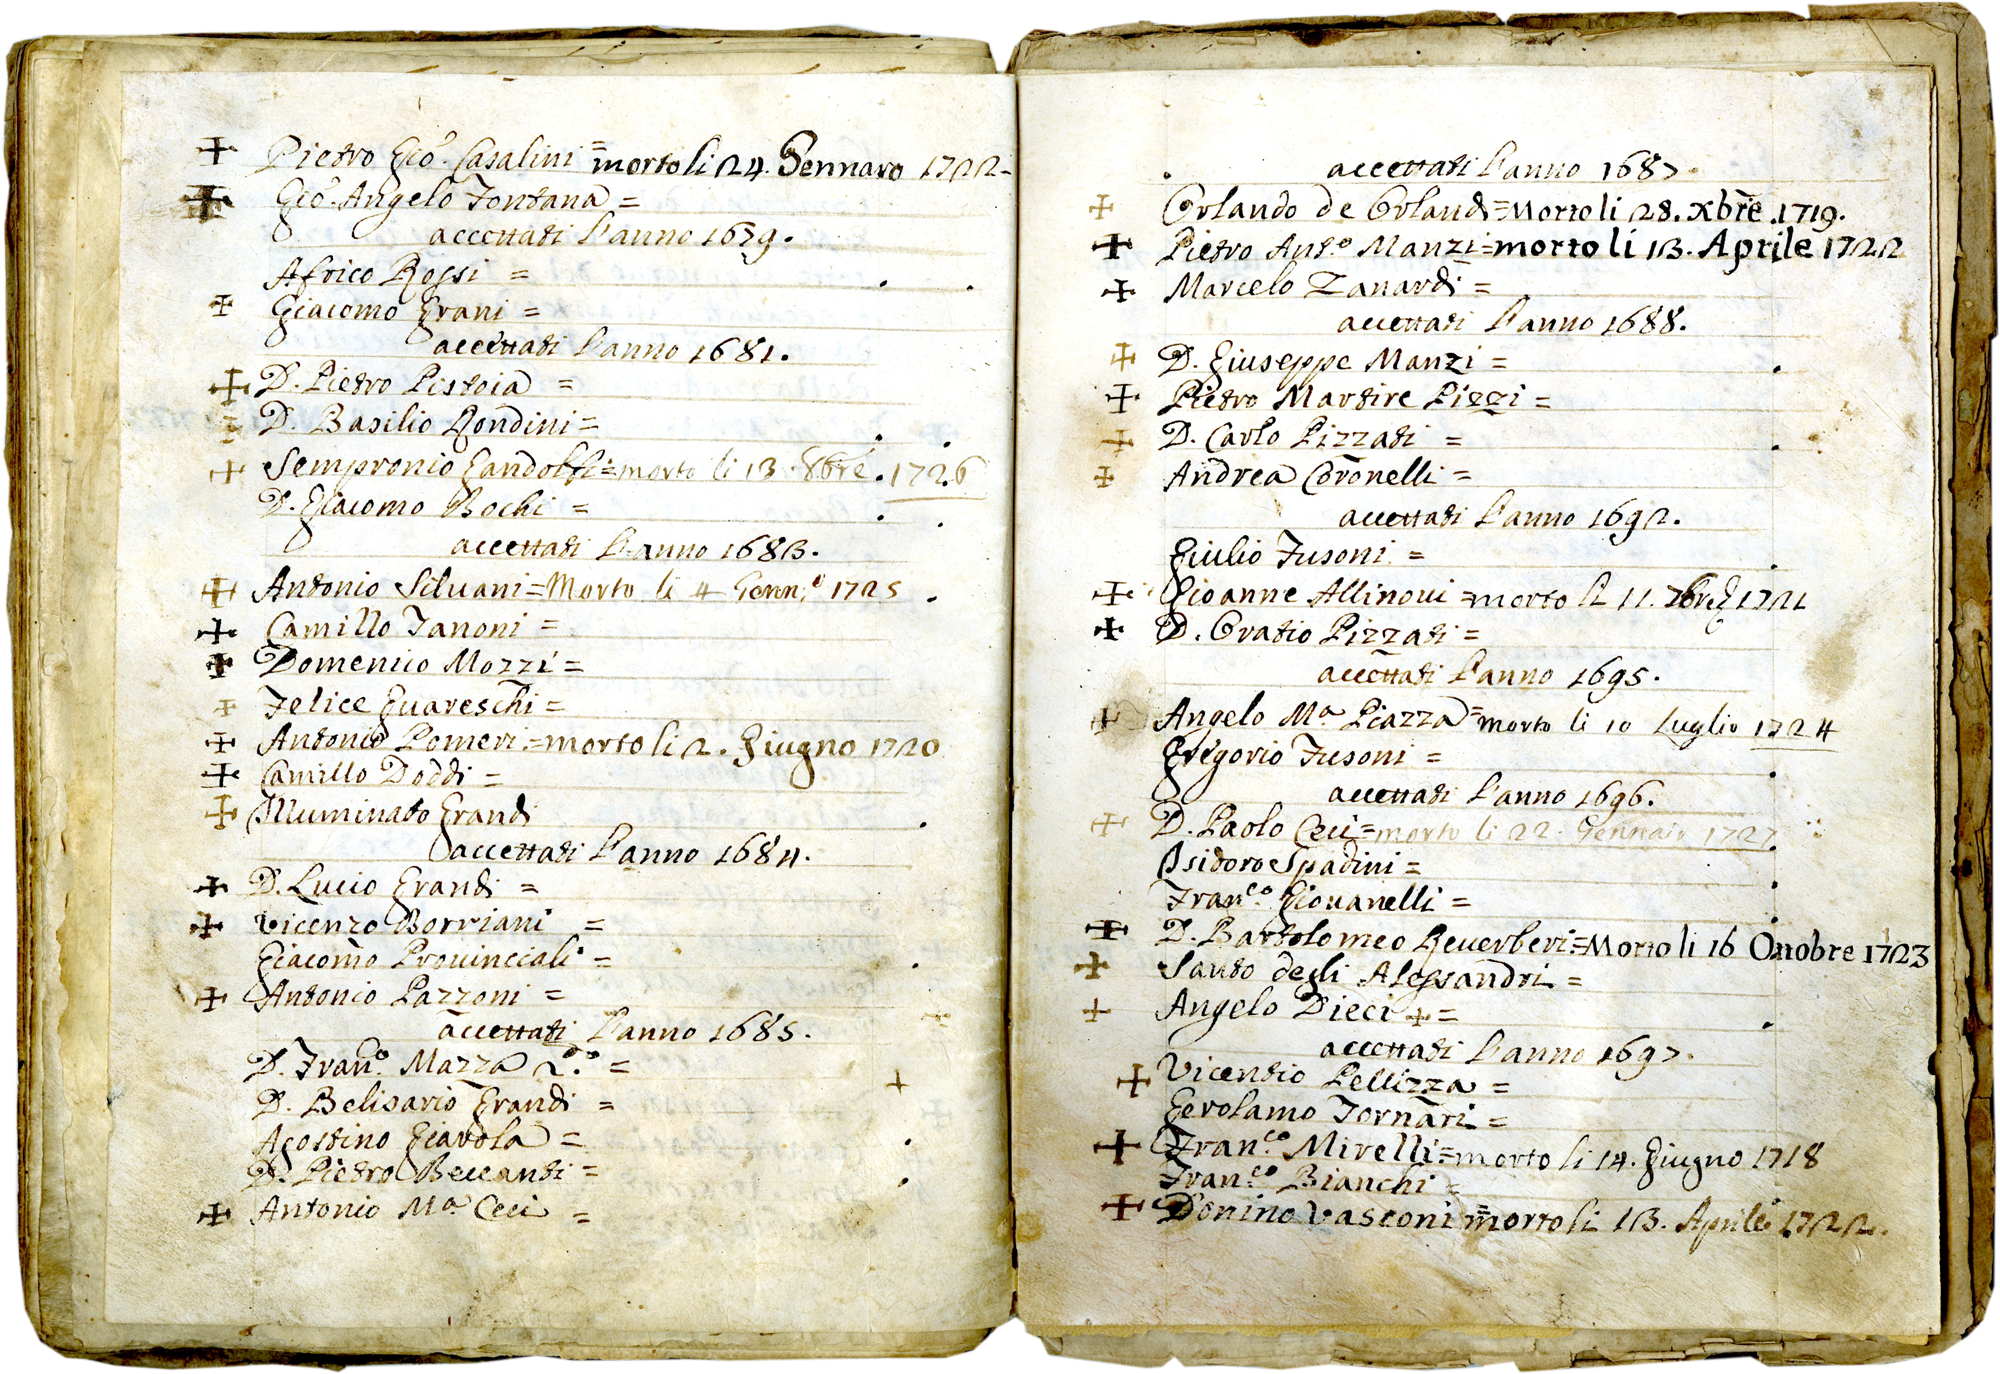 ✠ Pietro Gio. Casalini = morto li 24. Gennaro 1722
✠ Gio. Angelo Fontana =
accettati l'anno 1679.
Africo Rossi =
✠ Giacomo Grani =
accettati l'anno 1681.
✠ D. Pietro Pistoia =
✠ D. Basilio Rondini =
✠ Sempronio Gandolfi = morto li 13. 8bre. 1726
D. Giacomo Bochi =
accettati l'anno 1683.
✠ Antonio Siluani = Morto li 4 Genn.o 1725
✠ Camillo Zanoni =
✠ Domenico Mozzi =
✠ Felice Guareschi =
✠ Antonio Pomeri = morto li 2. Giugno 1720
✠ Camillo Doddi =
✠ Illuminato Grandi
accettati l'anno 1684.
✠ D. Lucio Grandi =
✠ Vicenzo Borriani =
Giacomo Prouinciali =
✠ Antonio Pazzoni =
accettati l'anno 1685.
D. Fran.o Mazza =
D. Belisario Grandi =
Agostino Giarola =
D. Pietro Beccanti =
✠ Antonio M.a Ceci =
accettati l'anno 1687.
✠ Orlando de Orlandi = Morto li 28. Xbre. 1719.
✠ Pietro Ant.o Manzi = morto li 13. Aprile 1722
✠ Marcelo Zanardi =
accettati l'anno 1688.
✠ D. Giuseppe Manzi =
✠ Pietro Martire Pizzi =
✠ D. Carlo Pizzati =
✠ Andrea Coronelli =
accettati l'anno 1692.
Giulio Fusoni =
✠ Gioanne Allinoui = morto li 11. 1721
✠ D. Oratio Pizzati =
accettati l'anno 1695.
✠ Angelo M.a Piazza = morto li 10 Luglio 1724
Gregorio Fusoni =
accettati l'anno 1696.
✠ D. Paolo Ceci = morto li 22. Gennaio 1727
Isidoro Spadini =
Fran.co Giouanelli =
✠ D. Bartolomeo Reuerberi = Morto li 16 Ottobre 1723
✠ Santo degli Alessandri =
✠ Angelo Dieci ✠ =
accettati l'anno 1697.
✠ Vicentio Pellizza =
Gerolamo Fornari =
✠ Fran.co Mirelli = morto li 14. Giugno 1718
Fran.co Bianchi =
✠ Donino Vasconi = morto li 13. Aprile 1722.